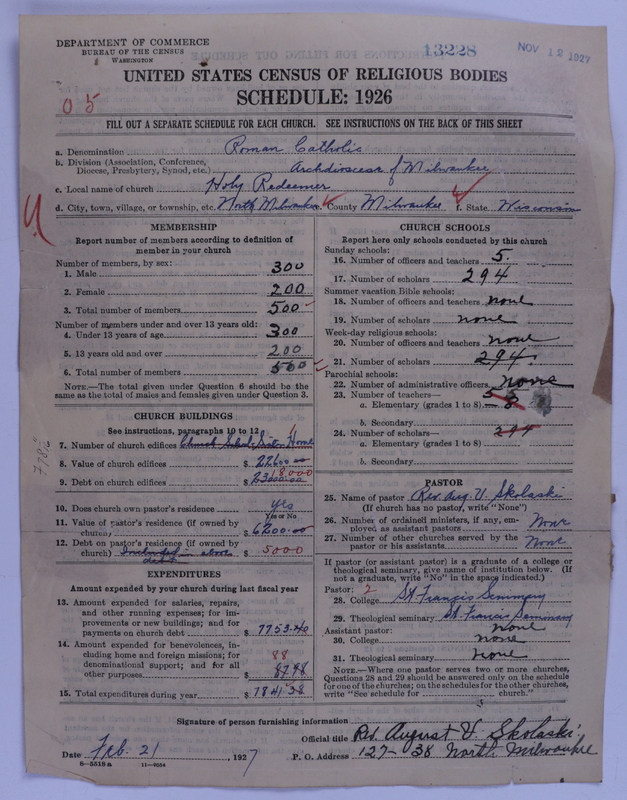 DEPARTMENT OF COMMERCE
BUREAU OF THE CENSUS
WASHINGTON
13228
NOV 12 1927
UNITED STATES CENSUS OF RELIGIOUS BODIES
SCHEDULE: 1926
05
FILL OUT A SEPARATE SCHEDULE FOR EACH CHURCH. SEE INSTRUCTIONS ON THE BACK OF THIS SHEET
a. Denomination Roman Catholic
b. Division (Association, Conference, Diocese, Presbytery, Synod, etc.) Archdiocese of Milwaukee
c. Local name of church Holy Redeemer
d. City, town, village, or township, etc. North Milwaukee County Milwaukee f. State Wisconsin
MEMBERSHIP
Report number of members according to definition of
member in your church
Number of members, by sex:
1. Male 300
2. Female 200
3. Total number of members 500
Number of members under and over 13 years old:
4. Under 13 years of age 300
5. 13 years old and over 200
6. Total number of members 500
NOTE.—The total given under Question 6 should be
the same as the total of males and females given under Question 3.
CHURCH BUILDINGS
See instructions, paragraphs 10 to 12
7. Number of church edifices Church School Sister Home 1
8. Value of church edifices $
9. Debt on church edifices $ 18000
10. Does church own pastor's residence? yes
Yes or No
11. Value of pastor's residence (if owned by
church) $ 6200.00
12. Debt on pastor's residence (if owned by
church) Included in above debt $ 5000
EXPENDITURES
Amount expended by your church during last fiscal year
13. Amount expended for salaries, repairs,
and other running expenses; for im-
provements or new buildings; and for
payments on church debt $ 7753.40
14. Amount expended for benevolences, in-
cluding home and foreign missions; for
denominational support; and for all
other purposes 88
$ 87.98
15. Total expenditures during year $ 7841.38
CHURCH SCHOOLS
Report here only schools conducted by this church
Sunday schools:
16. Number of officers and teachers 5.
17. Number of scholars 294
Summer vacation Bible schools:
18. Number of officers and teachers none
19. Number of scholars none
Week-day religious schools:
20. Number of officers and teachers none
21. Number of scholars 294.
Parochial schools:
22. Number of administrative officers none
23. Number of teachers—
a. Elementary (grades 1 to 8)
b. Secondary
24. Number of scholars— 294
a. Elementary (grades 1 to 8)
b. Secondary
PASTOR
25. Name of pastor Rev. Aug. V. Skolaski
(If church has no pastor, write "None")
26. Number of ordained ministers, if any, em-
ployed as assistant pastors None
27. Number of other churches served by the
pastor or his assistants None
If pastor (or assistant pastor) is a graduate of a college or
theological seminary, give name of institution below. (If
not a graduate, write "No" in the space indicated.)
Pastor: 2
28. College St Francis Seminary
29. Theological seminary St. Francis Seminary
Assistant pastor: none
30. College none
31. Theological seminary none
NOTE.—Where one pastor serves two or more churches,
Questions 28 and 29 should be answered only on the schedule
for one of the churches; on the schedules for the other churches,
write "See schedule for church."
Signature of person furnishing information
Official title Rev. August V. Skolaski
Date Feb. 21, 1927
P. O. Address 127-38 North Milwaukee
8-5518a 11-9504